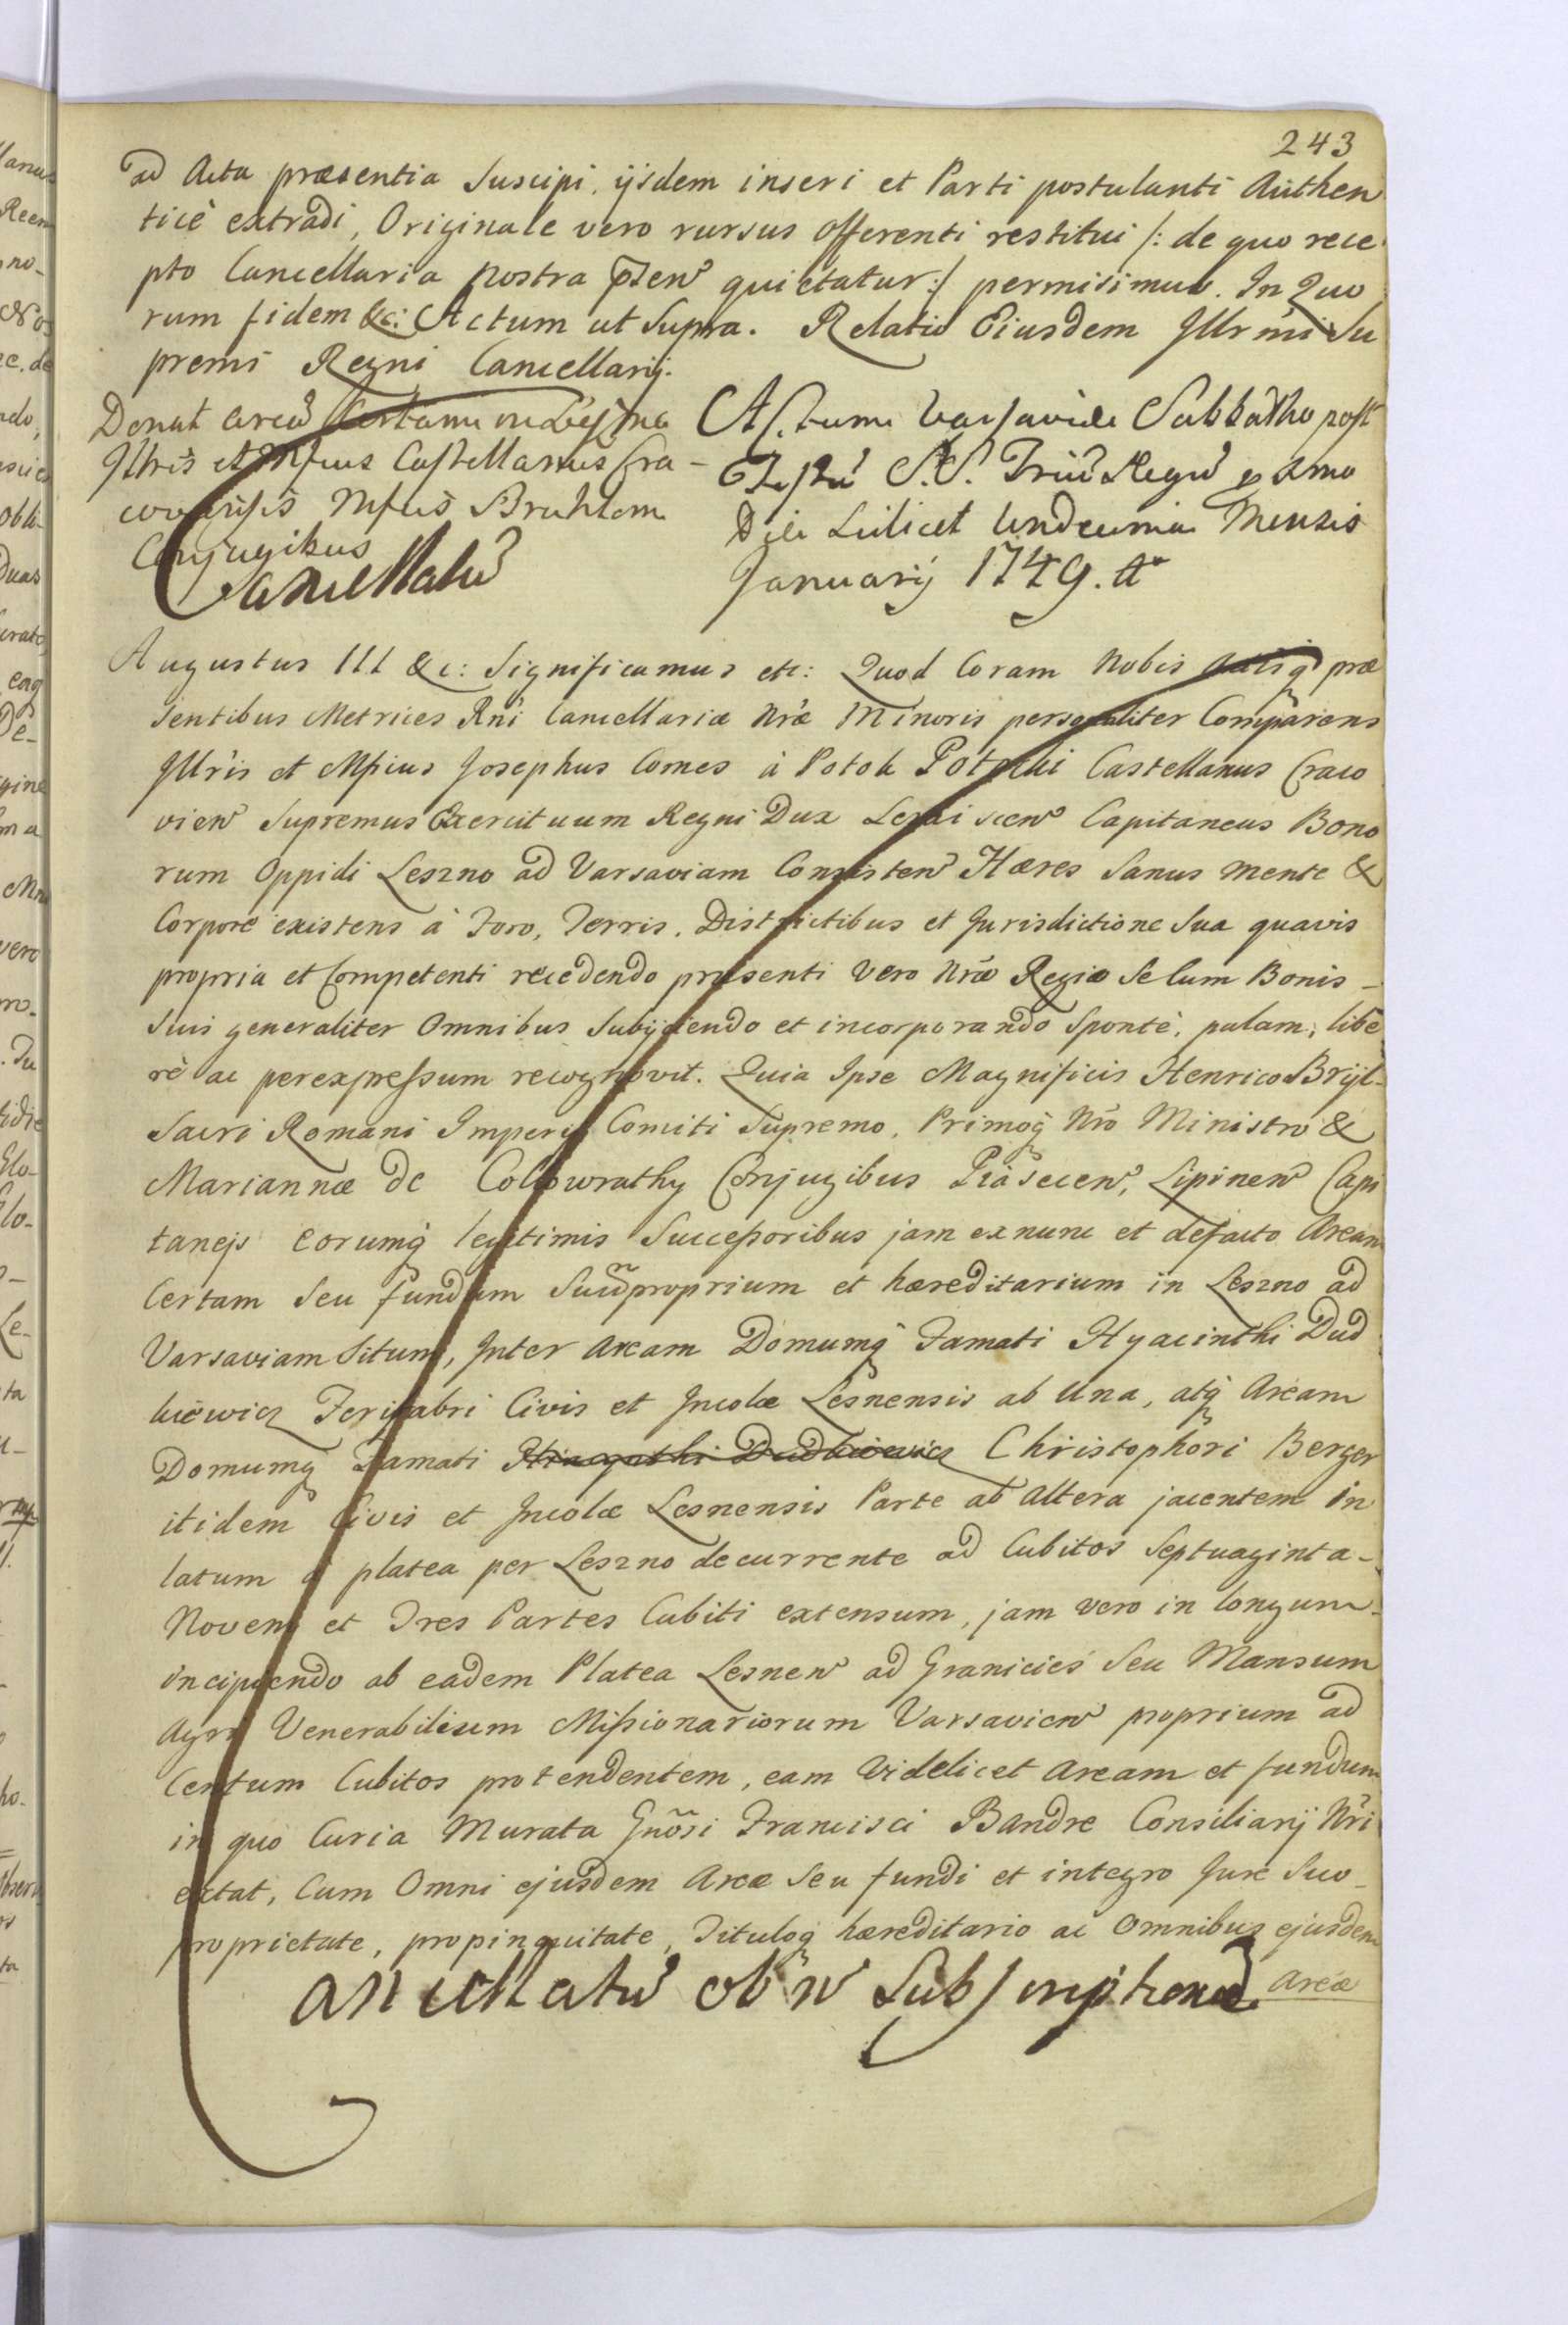 243
ad Acta præsentia Suscipi, ijsdem inseri et Parti postulanti Authen
ticè extradi, Originale vero rursus Offerenti restitui /: de quo rece
pto Cancellaria nostra pñten̄ quietatur :/ permisimus. In Quo
rum fidem &c: Actum ut Supra. Relatio Eiusdem Illr̃mi Su
premi Regni Cancellarij.
Donat areã Certam in Leszno
Illr̃is et Mfcus Castellanus Cra-
coviẽsis Mfcis Bruhlom
Conjugibus
Cancellatũ
Actum Varsaviæ Sabbatho post
Festũ S.S. Triũ Regũ pxmo
Die Scilicet Undecima Mensis
Januarij 1749. Aº
Augustus III &c: Significamus etc: Quod Coram Nobis Actisq̃ præ
sentibus Metrices Rñi Cancellariæ Nr̃æ Minoris personaliter Comparens
Illr̃is et Mf̃cus Josephus Comes à Potok Potocki Castellanus Craco
vien̄ Supremus Exercituum Regni Dux Leraiscen̄ Capitaneus Bono
rum Oppidi Leszno ad Varsaviam Consisten̄ Hæres Sanus mente &
Corpore existens à Foro, Terris, Districtibus et Jurisdictione Sua quavis
propria et Competenti recedendo præsenti vero Nr̃æ Regiæ Se Cum Bonis -
Suis generaliter Omnibus Subijciendo et incorporando Spontè, palam, libe
rè ac perexpressum recognovit. Quia Ipse Magnificis Henrico Brijl -
Sacri Romani Imperij Comiti Supremo, Primoq̃ Nr̃o Ministro &
Mariannæ de Collowrathy Conjugibus Piasecen̄, Lipinen̄ Capi
taneis eorumq̃ legitimis Successoribus jam exnunc et defacto Aream
Certam Seu fundum Suũ proprium et hæreditarium in Leszno ad
Varsaviam Situm, Inter Aream Domumq̃ Famati Hyacinthi Dud
kiewicz Ferifabri Civis et Incolæ Lesnensis ab Una, atq̃ Aream
Domumq̃ Famati Hiacynthi Dudkiewicz Christophori Berger
itidem Civis et Incolæ Lesnensis Parte ab Altera jacentem in
latum à platea per Leszno decurrente ad Cubitos Septuaginta -
Novem et Tres Partes Cubiti extensum, jam vero in longum -
incipiendo ab eadem Platea Lesnen̄ ad Granicies Seu Mansum
Agri Venerabilium Missionariorum Varsavien̄ proprium ad
Centum Cubitos protendentem, eam Videlicet Aream et fundum
in quo Curia Murata Gñosi Francisci Bandre Consiliarij Nr̃i
extat, Cum Omni ejusdem Areæ Seu fundi et integro Jure Suo -
proprietate, propinquitate, Tituloq̃ hæreditario ac Omnibus ejusdem
Areæ
Cancellatũ ob ñ Subscriptionẽ